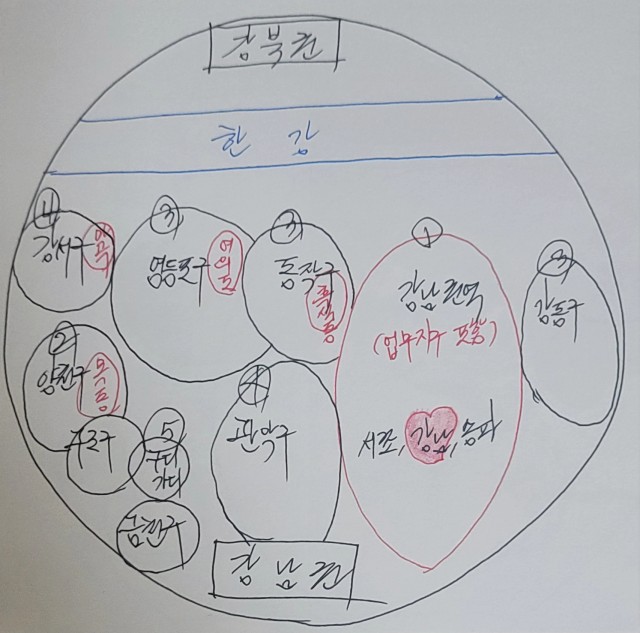 강북권
한 강
4
강서구
마곡
3
영등포구
여의도
3
동작구
흑석동
1
강남권역
(업무지구 포함)
서초, 강남, 송파
3
강동구
2
양천구
목동
구로구
5
구디
가디
금천구
4
관악구
강남권